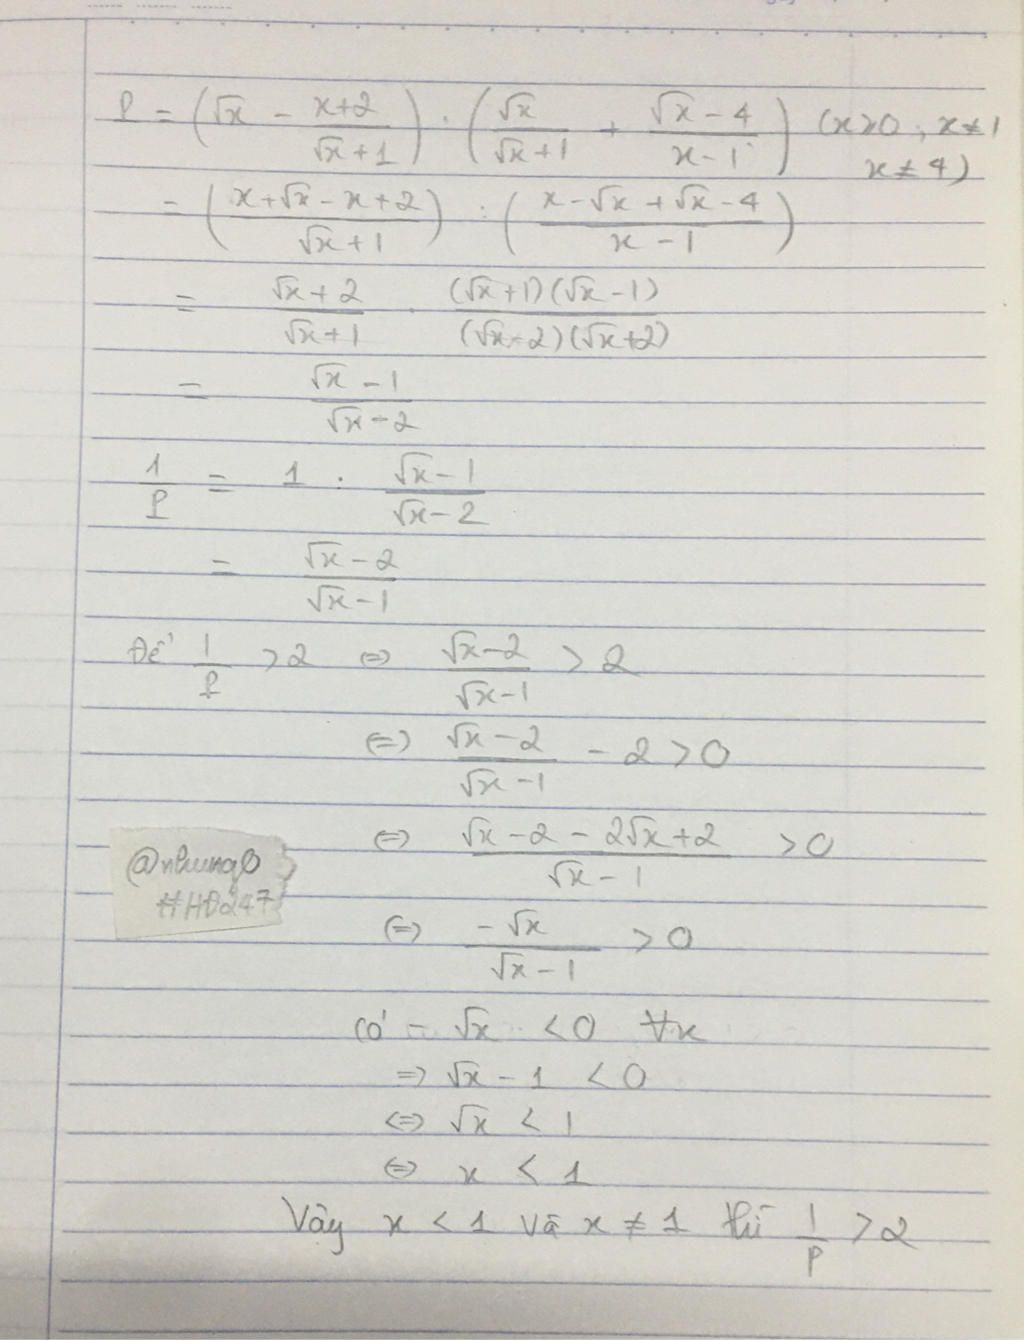 P = (√x - (x+2)/(√x+1)) : (√x/(√x+1) + (√x-4)/(x-1)) (x≥0, x≠1
x≠4)
= ((x+√x-x+2)/(√x+1)) : ((x-√x+√x-4)/(x-1))
= (√x+2)/(√x+1) . ((√x+1)(√x-1))/((√x-2)(√x+2))
= (√x-1)/(√x-2)
1/P = 1 . (√x-1)/(√x-2)
= (√x-2)/(√x-1)
Để 1/P >2 <=> (√x-2)/(√x-1) > 2
<=> (√x-2)/(√x-1) - 2 > 0
<=> (√x-2-2√x+2)/(√x-1) >0
@nhungb
#HĐ247
<=> -√x/(√x-1) > 0
có -√x <0 ∀x
=> √x - 1 < 0
<=> √x < 1
<=> x < 1
Vậy x < 1 và x ≠ 1 thì 1/P > 2